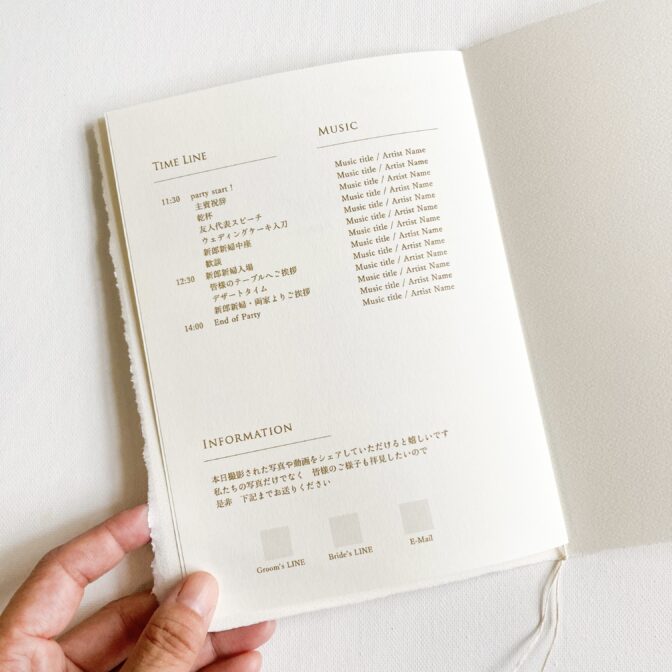 TIME LINE
11:30 party start !
主賓祝辞
乾杯
友人代表スピーチ
ウェディングケーキ入刀
新郎新婦中座
歓談
12:30 新郎新婦入場
皆様のテーブルへご挨拶
デザートタイム
新郎新婦・両家よりご挨拶
14:00 End of Party
MUSIC
Music title / Artist Name
Music title / Artist Name
Music title / Artist Name
Music title / Artist Name
Music title / Artist Name
Music title / Artist Name
Music title / Artist Name
Music title / Artist Name
Music title / Artist Name
Music title / Artist Name
Music title / Artist Name
Music title / Artist Name
Music title / Artist Name
INFORMATION
本日撮影された写真や動画をシェアしていただけると嬉しいです
私たちの写真だけでなく 皆様のご様子も拝見したいので
是非 下記までお送りください
Groom's LINE
Bride's LINE
E-Mail